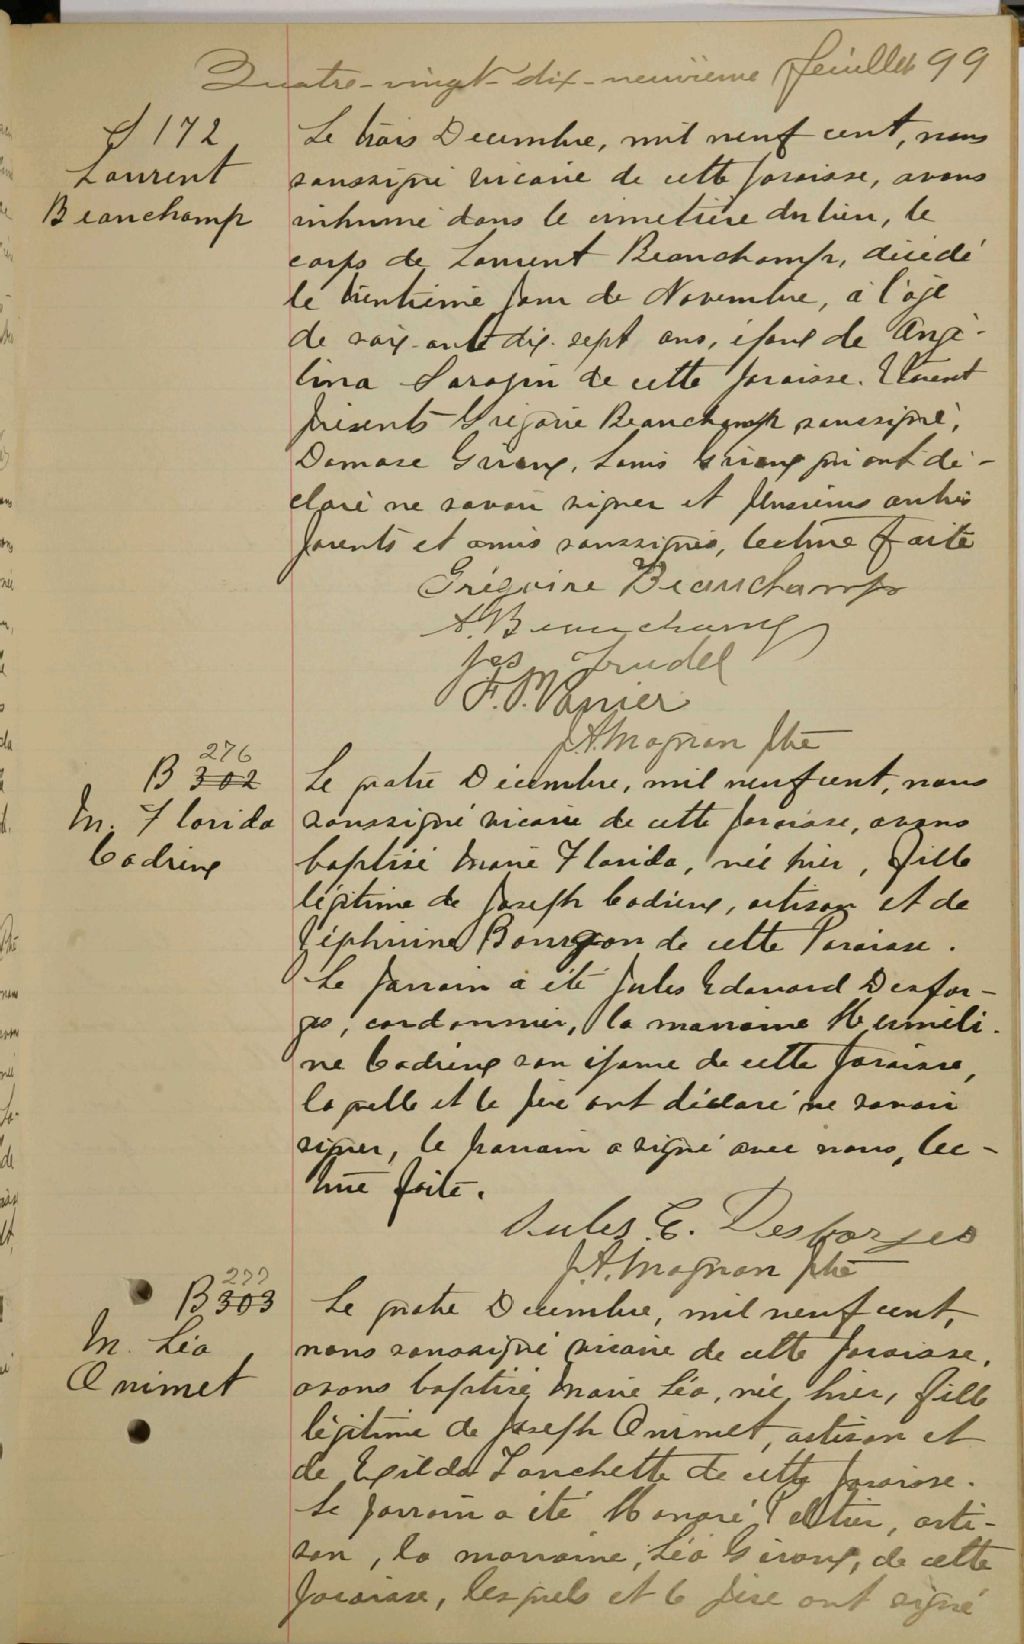 Quatre-vingt-dix-neuvième feuillet 99
S 172
Laurent
Beauchamp
Le trois Decembre, mil neuf cent, nous
soussigné vicaire de cette paroisse, avons
inhumé dans le cimetière du lieu, le
corps de Laurent Beauchamp, décédé
le trentième jour de Novembre, à l'age
de soix-ante dix-sept ans, époux de Angé-
lina Sarazin de cette paroisse. Etaient
présents Grégoire Beauchamp soussigné,
Damase Giroux, Louis Giroux qui ont dé-
claré ne savoir signer et plusieurs autres
parents et amis soussignés, lecture faite
Grégoire Beauchamp
A. Beauchamp
Jos Trudel
F.P. Vanier
J.A. Magnan Ptre
276
B 302
M. Florida
Cadieux
Le quatre Décembre, mil neuf cent, nous
soussigné vicaire de cette paroisse, avons
baptisé Marie Florida, née hier, fille
légitime de Joseph Cadieux, artisan et de
Zéphirine Bourgon de cette Paroisse.
Le parrain a été Jules Edouard Desfor-
ges, cordonnier, la marraine Herméli-
ne Cadieux son épouse de cette paroisse,
laquelle et le père ont déclaré ne savoir
signer, le parrain a signé avec nous, lec-
ture faite.
Jules E. Desforges
J.A. Magnan Ptre
277
B 303
M. Léa
Ouimet
Le quatre Decembre, mil neuf cent,
nous soussigné vicaire de cette paroisse,
avons baptisé Marie Léa, née hier, fille
légitime de Joseph Ouimet, artisan et
de Exilda Touchette de cette paroisse.
Le parrain a été Honoré Peltier, arti-
san, la marraine, Léa Giroux, de cette
paroisse, lesquels et le père ont signé